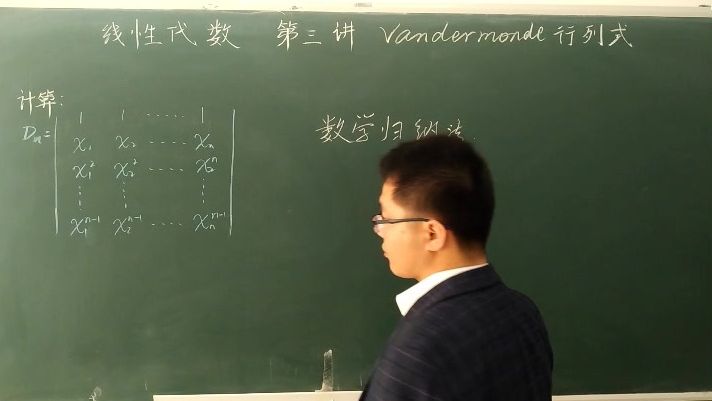 线性代数 第三讲 Vandermonde 行列式
计算:
Dn=
1 1 ····· 1
x₁ x₂ ···· xₙ
x₁² x₂² ···· x₂ⁿ
⋮ ⋮ ⋮
x₁ⁿ⁻¹ x₂ⁿ⁻¹ ···· xₙⁿ⁻¹
数学归纳法